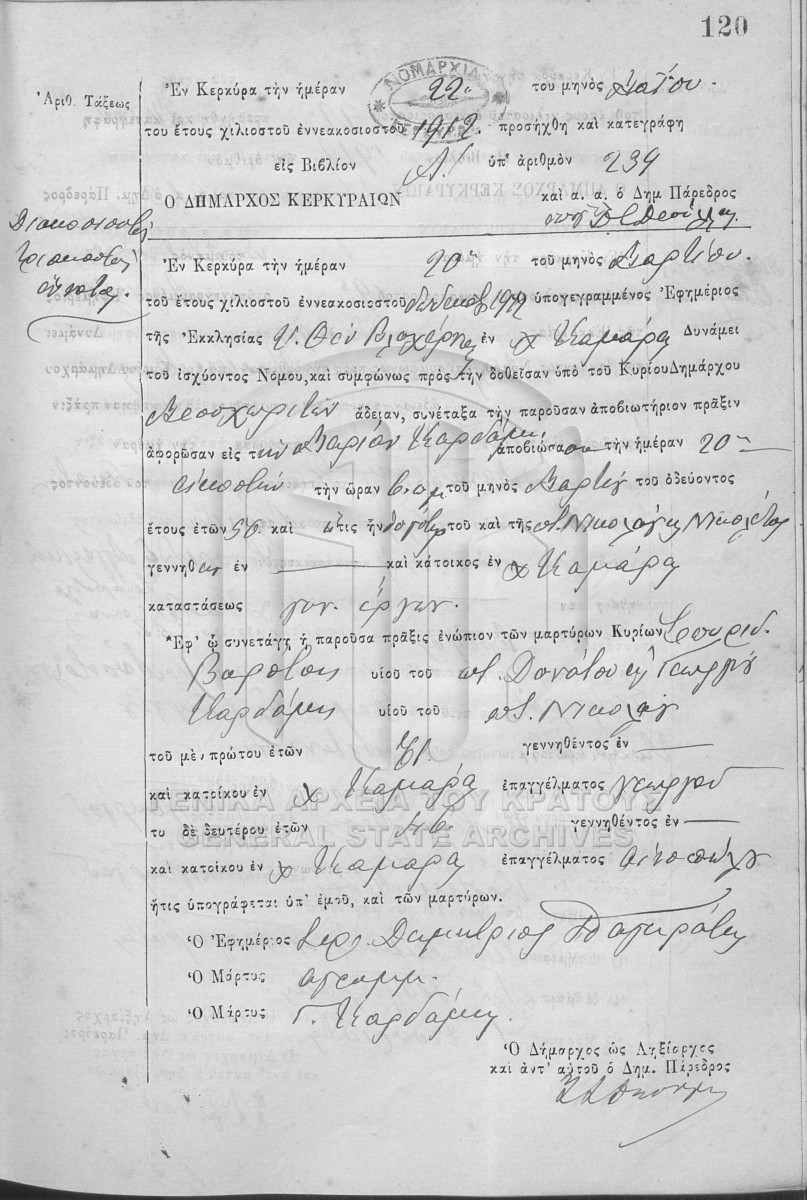 120
ΝΟΜΑΡΧΙΑ
Ἀριθ. Τάξεως
Ἐν Κερκύρᾳ τὴν ἡμέραν 22α τοῦ μηνὸς Μαΐου
τοῦ ἔτους χιλιοστοῦ ἐννεακοσιοστοῦ 1912. προσήχθη καὶ κατεγράφη
εἰς Βιβλίον Α! ὑπ' ἀριθμὸν 239
Ο ΔΗΜΑΡΧΟΣ ΚΕΡΚΥΡΑΙΩΝ καὶ α. α. ὁ Δημ Πάρεδρος
Διακοσιοστὴ
τριακοστὴ
ἐννάτη.
Ἐν Κερκύρᾳ τὴν ἡμέραν 20ην τοῦ μηνὸς Μαρτίου.
τοῦ ἔτους χιλιοστοῦ ἐννεακοσιοστοῦ ὑπογεγραμμένος Ἐφημέριος
τῆς Ἐκκλησίας Υ. Θου Βλαχέρνης ἐν χ Καμάρα Δυνάμει
τοῦ ἰσχύοντος Νόμου, καὶ συμφώνως πρὸς τὴν δοθεῖσαν ὑπὸ τοῦ Κυρίου Δημάρχου
ἄδειαν, συνέταξα τὴν παροῦσαν ἀποβιωτήριον πρᾶξιν
ἀφορῶσαν εἰς τὴν Μαρίαν Καρδάμη ἀποβιώσασαν τὴν ἡμέραν 20ην
εἰκοστὴν τὴν ὥραν 6 π.μ. τοῦ μηνὸς Μαρτίου τοῦ ὁδεύοντος
ἔτους ἐτῶν 56 καὶ ἥτις ἦν θυγάτηρ τοῦ καὶ τῆς ποτ. Νικολάου καὶ Νικολέτας
γεννηθεῖσα ἐν καὶ κάτοικος ἐν χ Καμάρα
καταστάσεως γυν. ἔργων.
Ἐφ' ᾧ συνετάγη ἡ παροῦσα πρᾶξις ἐνώπιον τῶν μαρτύρων Κυρίων Σπυρίδ.
Βαρότση υἱοῦ τοῦ ποτ. Δονάτου καὶ Γεωργίου
Καρδάμη υἱοῦ τοῦ ποτ. Νικολάου
τοῦ μὲν πρώτου ἐτῶν 61 γεννηθέντος ἐν
καὶ κατοίκου ἐν χ Καμάρα ἐπαγγέλματος γεωργοῦ
ΓΕΝΙΚΑ ΑΡΧΕΙΑ ΤΟΥ ΚΡΑΤΟΥΣ
τυ δὲ δευτέρου ἐτῶν 46 γεννηθέντος ἐν
GENERAL STATE ARCHIVES
καὶ κατοίκου ἐν χ Καμάρα ἐπαγγέλματος
ἥτις ὑπογράφεται ὑπ' ἐμοῦ, καὶ τῶν μαρτύρων.
Ὁ Ἐφημέριος Ἱερ. Δημήτριος
Ὁ Μάρτυς ἀγράμμ.
Ὁ Μάρτυς Γ. Καρδάμης
Ὁ Δήμαρχος ὡς Ληξίαρχος
καὶ ἀντ' αὐτοῦ ὁ Δημ. Πάρεδρος